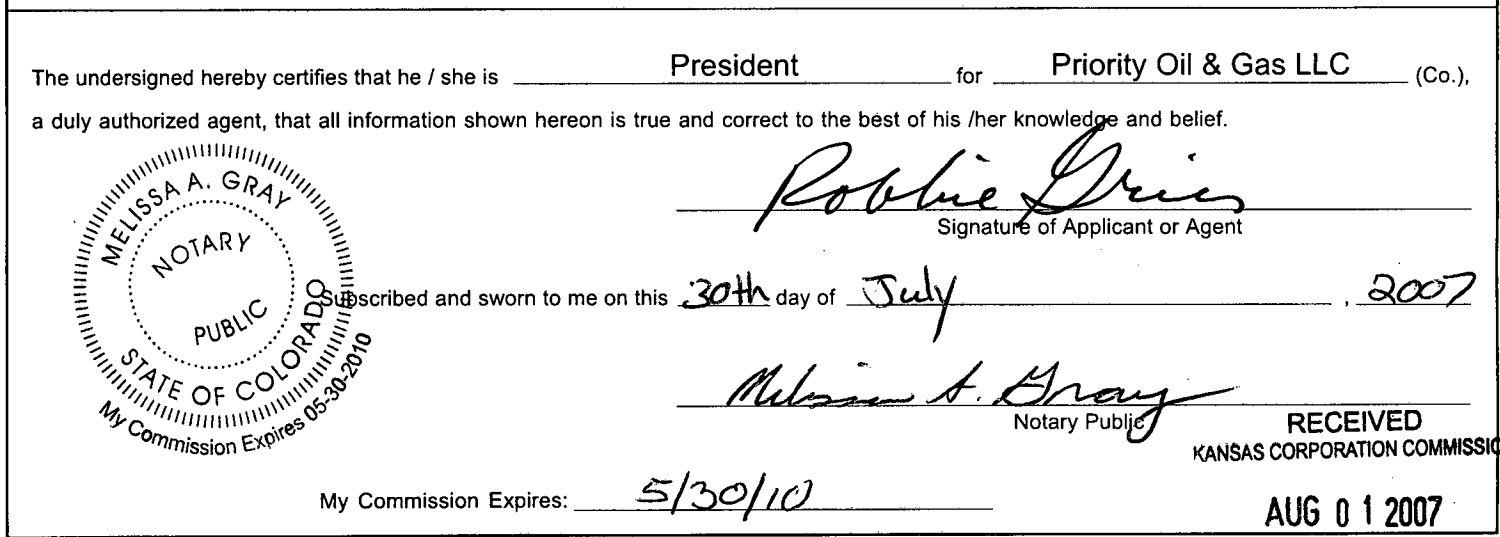 The undersigned hereby certifies that he / she is President for Priority Oil & Gas LLC (Co.),
a duly authorized agent, that all information shown hereon is true and correct to the best of his /her knowledge and belief.
MELISSA A. GRAY
NOTARY
PUBLIC
STATE OF COLORADO
My Commission Expires 05-30-2010
Robbie Gries
Signature of Applicant or Agent
Subscribed and sworn to me on this 30th day of July , 2007
Melissa A. Gray
Notary Public
RECEIVED
KANSAS CORPORATION COMMISSIO
My Commission Expires: 5/30/10
AUG 0 1 2007